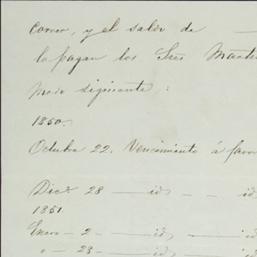 correr, y el saldo de
lo pagan los Sres
modo siguiente,:
1850.
Octubre 22. Vencimiento á favor
Dicե 28 — id — id
1851.
Enero — 2 — id — id
" — 23 — id